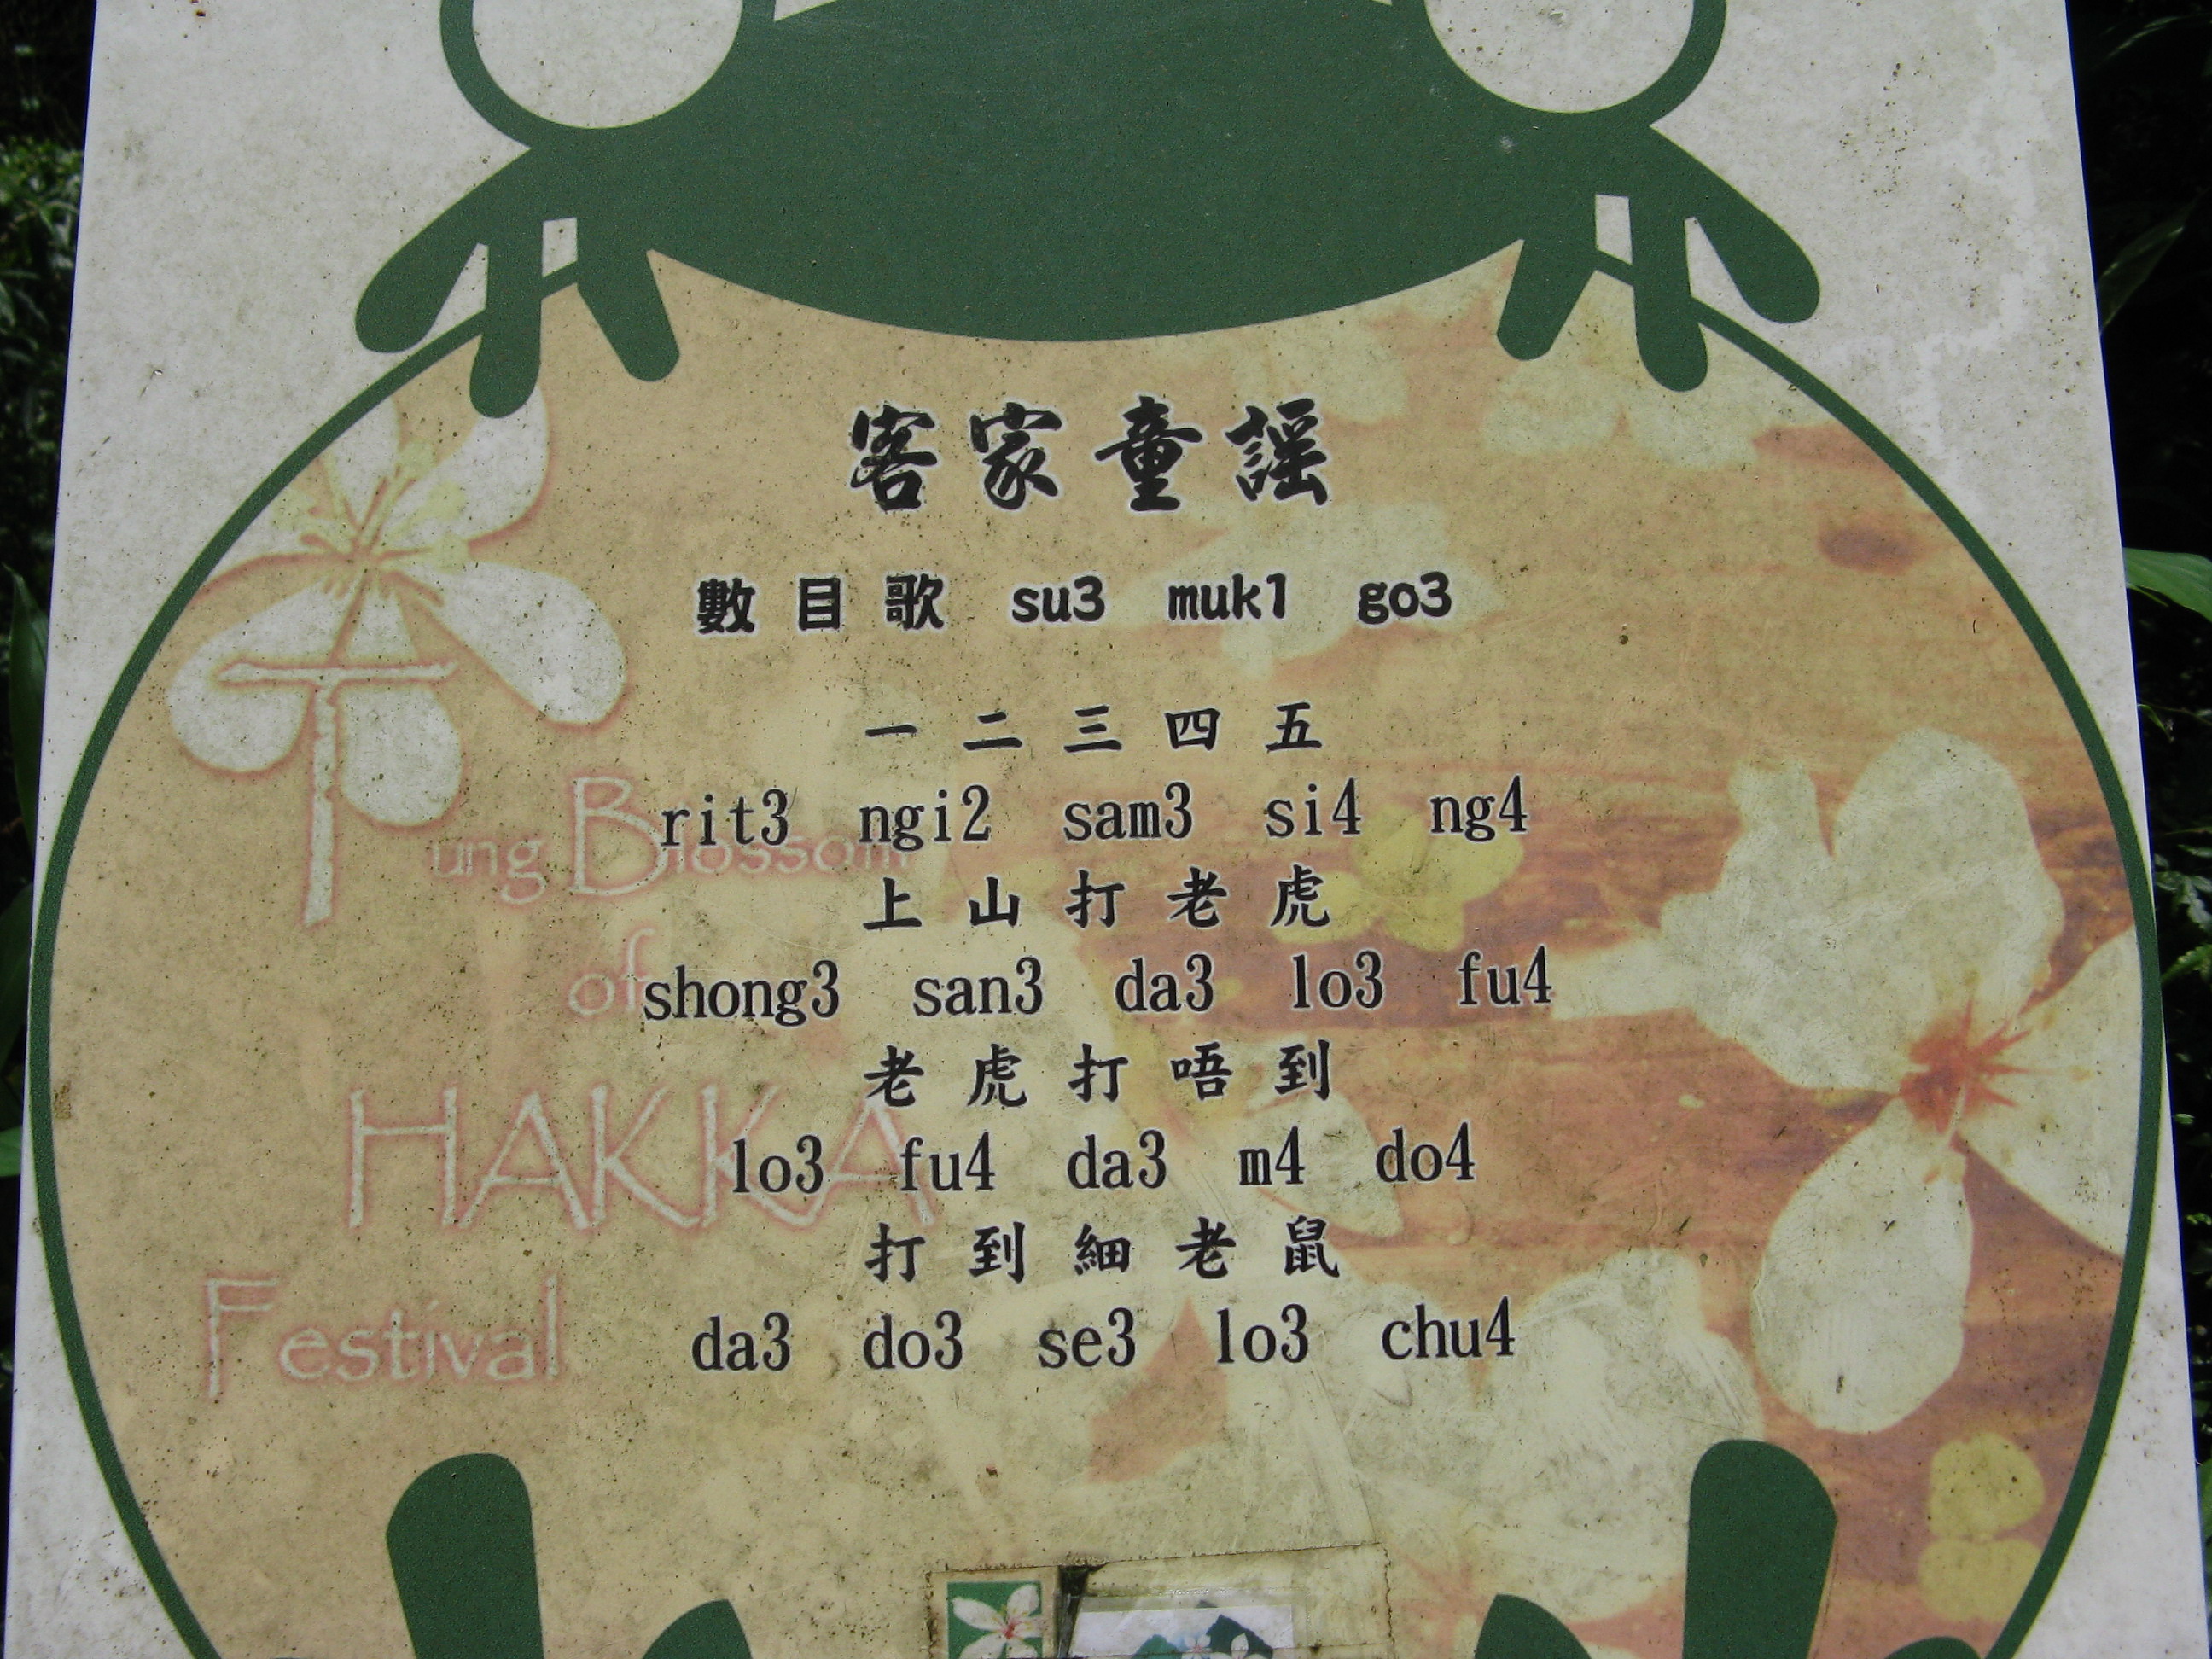 客家童謡
數目歌 su3 muk1 go3
一二三四五
rit3 ngi2 sam3 si4 ng4
上山打老虎
shong3 san3 da3 lo3 fu4
老虎打唔到
lo3 fu4 da3 m4 do4
打到細老鼠
da3 do3 se3 lo3 chu4
Tung Blossom
of
HAKKA
Festival